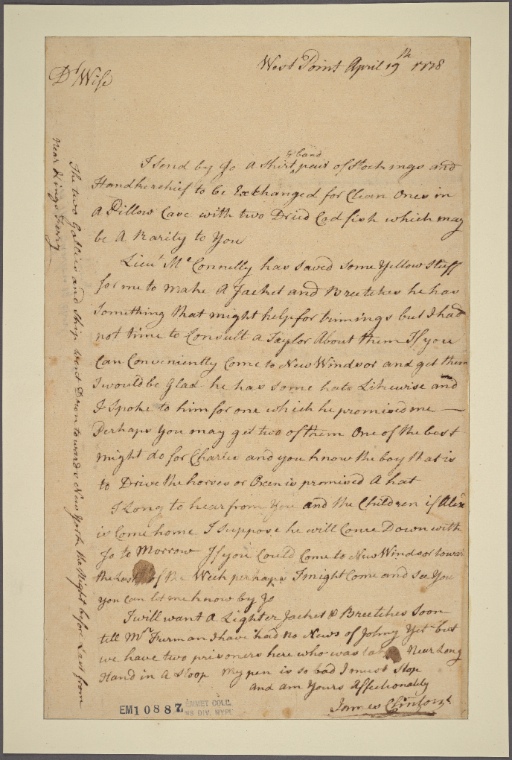 West Point April 19th 1778
Dr Wife
I send by Jo A Shirt & band pair of Stockings and
Handkerchief to be Exchanged for Clean Ones in
A Pillow Case with two Dried Cod fish which may
be A Rarity to You
Lieut McConnelly has saved Some Yellow Stuff
for me to make A Jacket and Breetches he has
Something that might help for trimings but I had
not time to Consult a Taylor About them If you
Can Conveniently Come to New Windsor and get them
I would be Glad he has some hats Likewise and
I Spoke to him for one which he promised me —
Perhaps you may get two of them One of the best
might do for Charles and you know the boy that is
to Drive the horses or Oxen is promised A hat
I Long to hear from You and the Children if Alex
is Come home I suppose he will Come Down with
Jo to Morrow If you Could Come to New Windsor
the of the Week perhaps I might Come and See You
you Can let me know by Jo
I will want A Lighter Jacket & Breetches Soon
tell Mr Furman I have had no News of Johny Yet but
we have two prisoners here who was Near Long
Iland in A Sloop My pen is so bad I must Stop
and am Yours Affectionately
James Clinton
The two Gallies and Ship went Down towards New York the Night before Last from
near Kings Ferry
EM10887
EMMET COLL.
MS DIV. NYPL